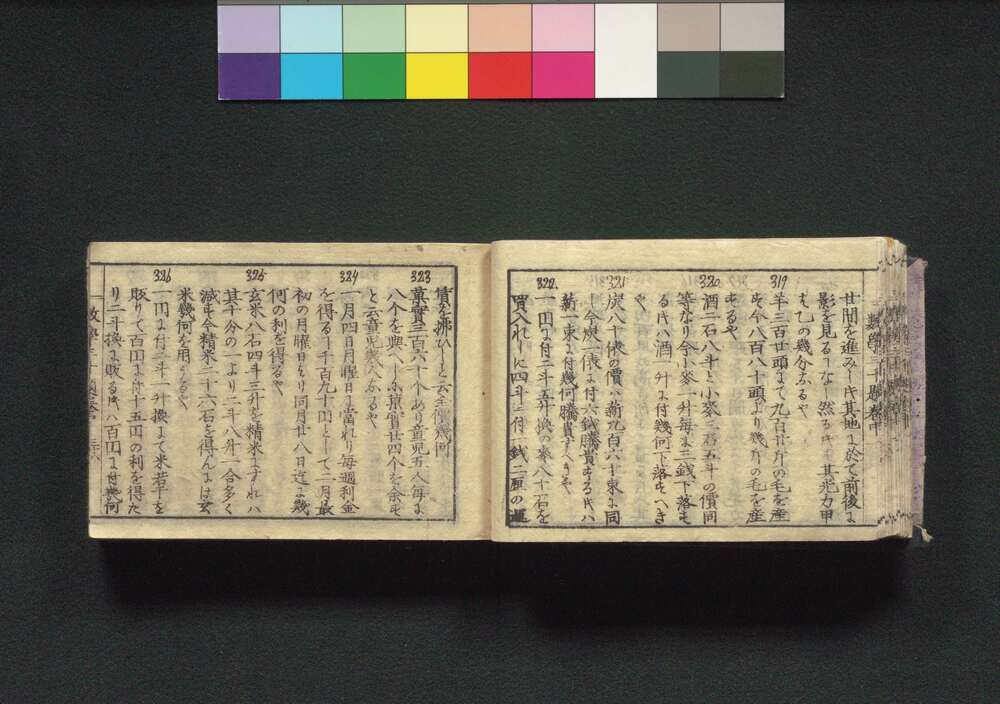 廿間を進みし氏其地に於て前後に
影を見るうなし然る氏は其光力甲
は乙の幾分なるや
319
羊三百廿頭まて九百廿斤の毛を産
す今八百八十頭より幾斤の毛を産
するや
320
酒二石八斗と小麥三石五斗の價同
等なり今小麥一升毎に三銭下落す
る氏ハ酒一升に付幾何下落すへき
や
321
炭八十俵の價ハ薪九百六十束に同
し今炭一俵に付六銭騰貴する氏ハ
薪一束に付幾何騰貴すへきや
322
一円に付二斗五升換の麥八十石を
買入れしに四斗に付一銭二厘の運
賃を拂ひしと云全價幾何
323
菓實三百六十个あり童児五人毎に
八个を與へしに菓實廿四个を余す
と云童児幾人なるや
324
一月四日月曜日に當れり毎週利金
を得る千九十円として二月最
初の月曜日より同月廿八日迄に幾
何の利を得るや
325
玄米八石四斗三升を精米にすれハ
其十分の一より二斗八升一合多く
減す今精米二十六石を得んには玄
米幾何を用うるや
326
一円に付二斗一升換まて米若干を
販りて百円に付十五円の利を得た
り二斗換に販る氏ハ百円に付幾何